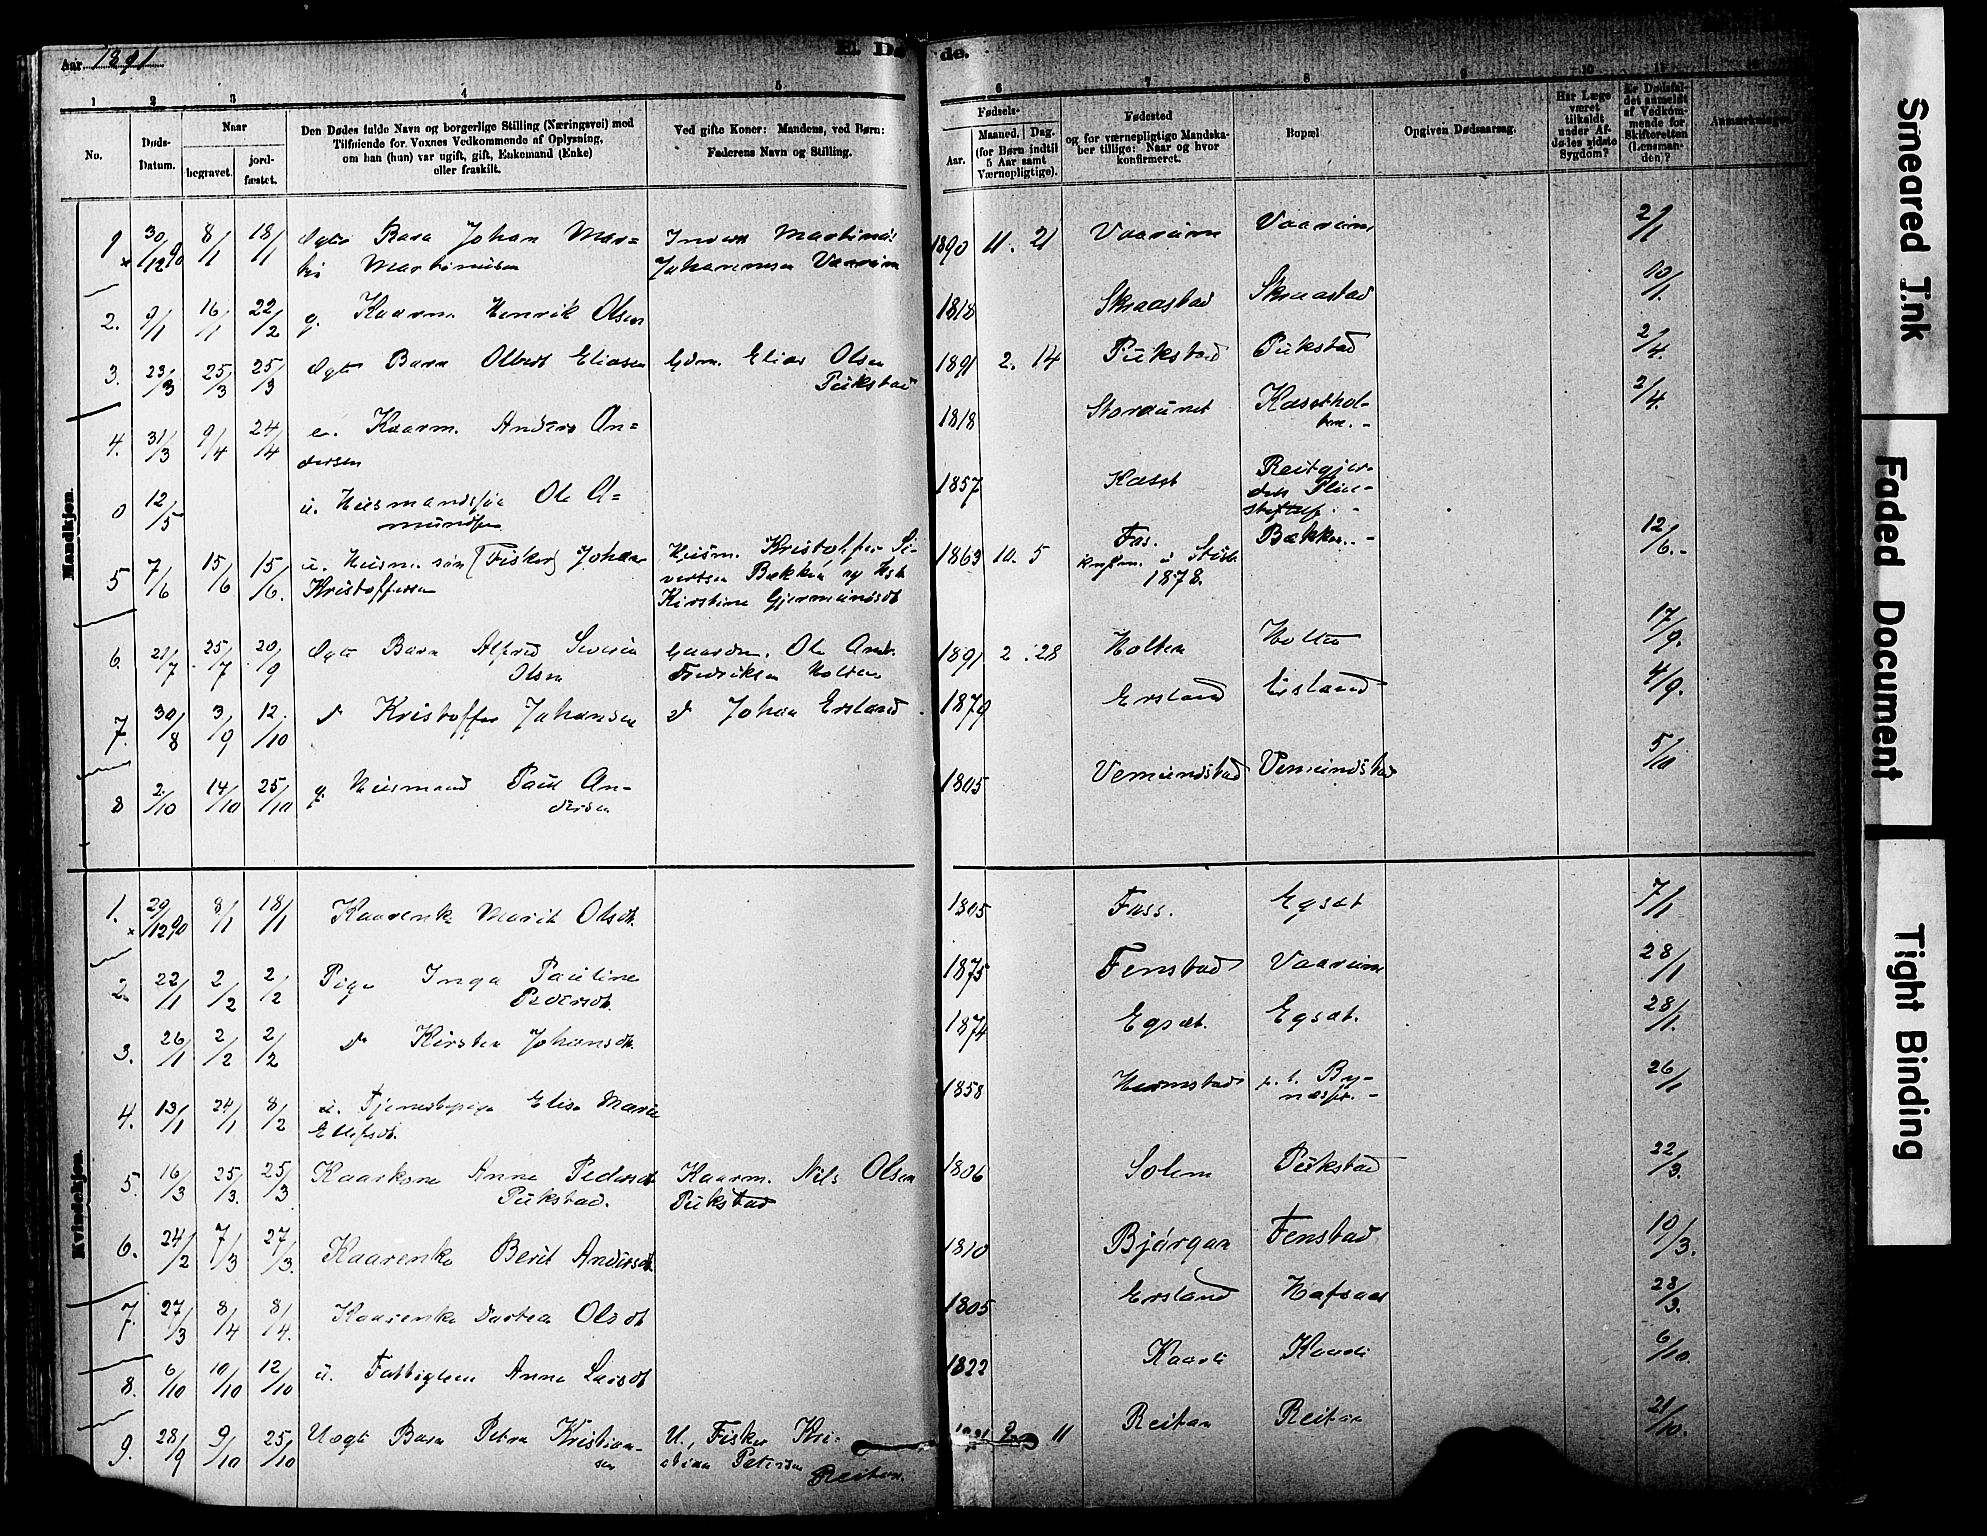 Aar 1891
E. Dø
de.
1 2 3 4 5 6 7 8 9 10 11
No.
Døds-
Datum.
Naar
begravet.
jord-
fæstet.
Den Dødes fulde Navn og borgerlige Stilling (Næringsvei) med
Tilføiende for Voxnes Vedkommende af Oplysning,
om han (hun) var ugift, gift, Enkemand (Enke)
eller fraskilt.
Ved gifte Koner: Mandens, ved Børn:
Faderens Navn og Stilling.
Fødsels-
Aar.
Maaned. Dag.
(for Børn indtil
5 Aar samt
Værnepligtige).
Fødested
og for værnepligtige Mandska-
ber tillige: Naar og hvor
konfirmeret.
Bopæl
Opgiven Dødsaarsag.
Har Læge
været
tilkaldt
under Af-
dødes sidste
Sygdom?
Er Dødsfal-
det anmeldt
af Vedkom-
mende for
Skifteretten
(Lensman-
den)?
Anmærkninger.
Mandkjøn.
1 30/12 90 8/1 18/1 Ægte Barn Johan Mar- Martinus 1890 11. 21 Vaarum Vaarum 2/1
tin Martinusen Johannesen Vaarum
2. 9/1 16/1 22/2 g. Kaarm. Henrik Olsen 1818 Skraastad Skraastad 10/1.
3. 23/3 25/3 25/3 Ægte Barn Albert Eliasen Gdm. Elias Olsen 1891 2. 14 Pukstad Pukstad 2/4.
Pukstad
4. 31/3 9/4 24/4 e. Kaarm. Anders An- 1818 Storaunet 2/4.
dersen
0 12/5 u. Husmandssøn Ole A- 1857 Reitgjer-
mundsen
5 7/6 15/6 15/6. u. Husm. søn (Fisker) Johan Husm. Kristoffer Si- 1863 10. 5 Fos. Bækken. - 12/6. -
Kristoffersen vertsen Bækken og
Kirstine Gjermundsdt 1878.
6. 21/7 25/7 20/9 Ægte Barn Alfred Severin Gaardm. Ole And. 1891 2. 28 Holten Holten 17/9.
Olsen Fredriksen Holten
7. 30/8 3/9 12/10 do Kristoffer Johansen do Johan Ersland 1879 Ersland Ersland 4/9.
8 2/10 14/10 25/10 g. Husmand Paul An- 1805 Vemundstad Vemundstad 5/10
dersen
Kvindekjøn.
1. 29/12 90 8/1 18/1 Kaarenke Marit Olsdt. 1805 Foss. Egsæt 7/1
2. 22/1 2/2 2/2 Pige Inga Pauline 1875 Fenstad Vaarum 28/1
Pedersdt.
3. 26/1 2/2 2/2 do Kirsten Johansdt. 1874 Egsæt. Egsæt. 28/1.
4. 13/1 24/1 8/2 u. Tjenestepige Elise Marie 1858 p. t. By- 26/1
Ellefsdt. næsset. -
5. 16/3 25/3. 25/3 Kaarkone Anne Pedersdt Kaarm. Nils Olsen 1806 Solem Pukstad 22/3.
Pukstad. Pukstad
6. 24/2 7/3 27/3. Kaarenke Berit Andersdt. 1810 Bjørgan Fenstad 10/3.
7. 27/3 8/4 8/4. Kaarenke Dortea Olsdt 1805 Ersland Hafsaas 28/3.
8. 6/10 10/10 12/10 u. Fattiglem Anne Larsdt 1822 6/10.
9. 28/9 9/10 25/10 Uægte Barn Petra Kristian- U., Fisker Kri- 1891 2 11 Reitan Reitan 21/10.
sen stian Petersen
Reitan.
Smeared Ink
Faded Document
Tight Binding